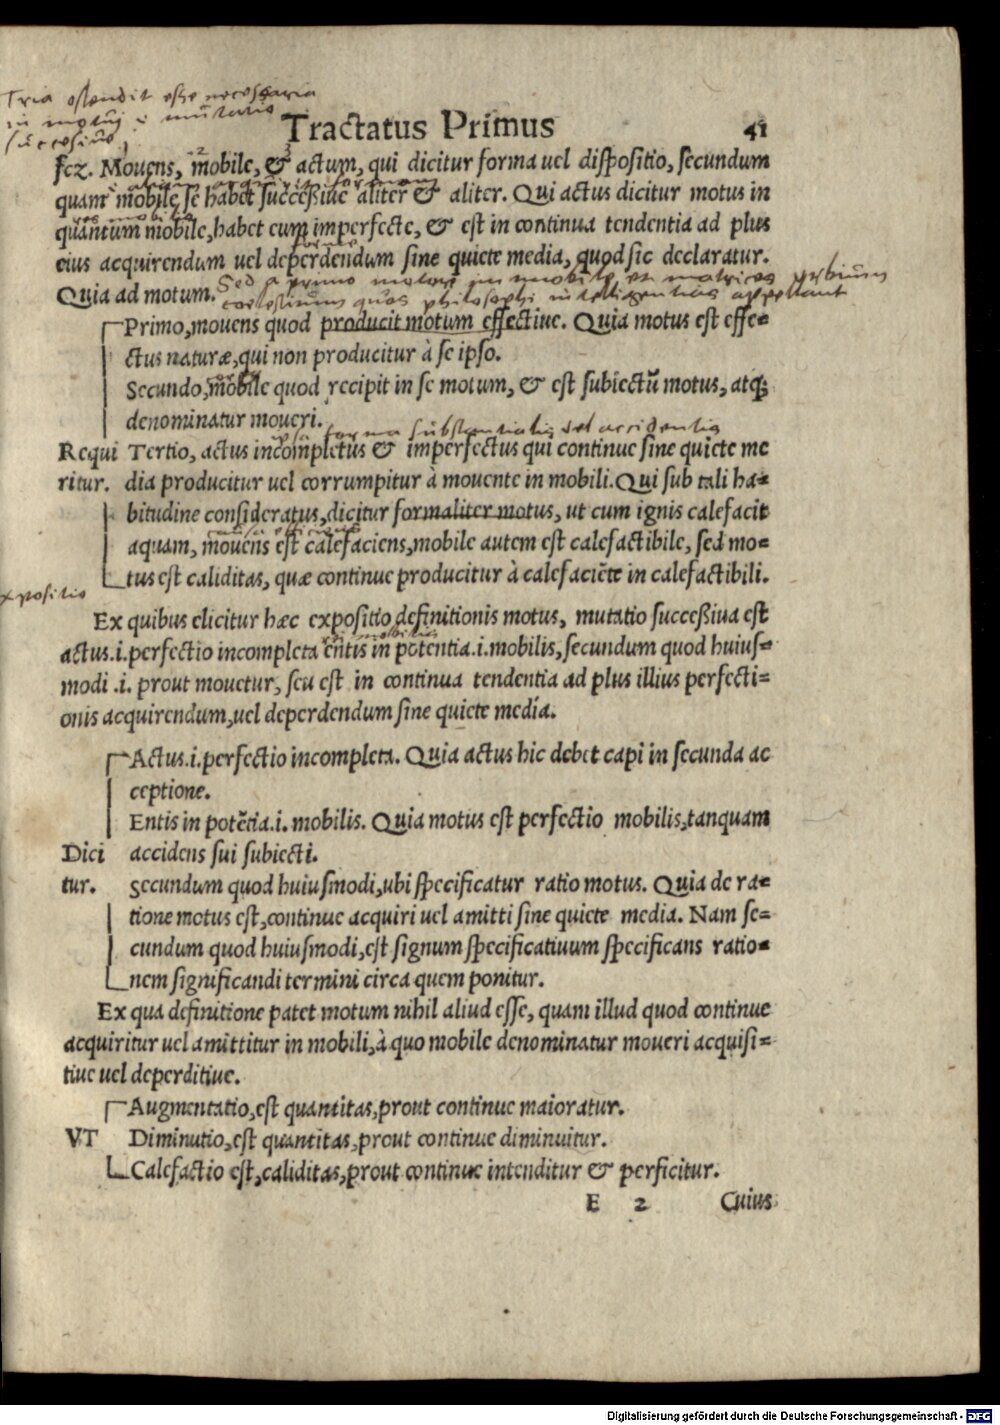 Tria ostendit esse necessaria
in motu i mutatio
succesiuo,
Tractatus Primus 41
fcz. Mouens, mobile, & actum, qui dicitur forma uel dispositio, secundum
quam mobile se habet successiue aliter & aliter. Qui actus dicitur motus in
res mobilis
quantum mobile, habet eum imperfecte, & est in continua tendentia ad plus
eius acquirendum uel deperdendum sine quiete media, quod sic declaratur.
Sed a primo motore immobile et motrices orbium
Quia ad motum.
coelestium quas philosophi intelligentias appellant
Primo, mouens quod producit motum effectiue. Quia motus est effe=
ctus naturæ, qui non producitur à se ipso.
Secundo, mobile quod recipit in se motum, & est subiectũ motus, atq;
denominatur moueri.
forma substantialis vel accidentis
Requi Tertio, actus incompletus & imperfectus qui continue sine quiete me
ritur. dia producitur uel corrumpitur à mouente in mobili. Qui sub tali ha=
bitudine consideratus, dicitur formaliter motus, ut cum ignis calefacit
aquam, mouens est calefaciens, mobile autem est calefactibile, sed mo=
tus est caliditas, quæ continue producitur à calefaciẽte in calefactibili.
xpositio
Ex quibus elicitur hæc expositio definitionis motus, mutatio successiua est
actus .i. perfectio incompleta entis in potentia .i. mobilis, secundum quod huius=
modi .i. prout mouetur, seu est in continua tendentia ad plus illius perfecti=
onis acquirendum, uel deperdendum sine quiete media.
Actus .i. perfectio incompleta. Quia actus hic debet capi in secunda ac
ceptione.
Entis in potẽtia .i. mobilis. Quia motus est perfectio mobilis, tanquam
Dici accidens sui subiecti.
tur. Secundum quod huiusmodi, ubi specificatur ratio motus. Quia de ra=
tione motus est, continue acquiri uel amitti sine quiete media. Nam se=
cundum quod huiusmodi, est signum specificatiuum specificans ratio=
nem significandi termini circa quem ponitur.
Ex qua definitione patet motum nihil aliud esse, quam illud quod continue
acquiritur uel amittitur in mobili, à quo mobile denominatur moueri acquisi=
tiue uel deperditiue.
Augmentatio, est quantitas, prout continue maioratur.
VT Diminutio, est quantitas, prout continue diminuitur.
Calefactio est, caliditas, prout continue intenditur & perficitur.
E 2 Cuius
Digitalisierung gefördert durch die Deutsche Forschungsgemeinschaft - DFG